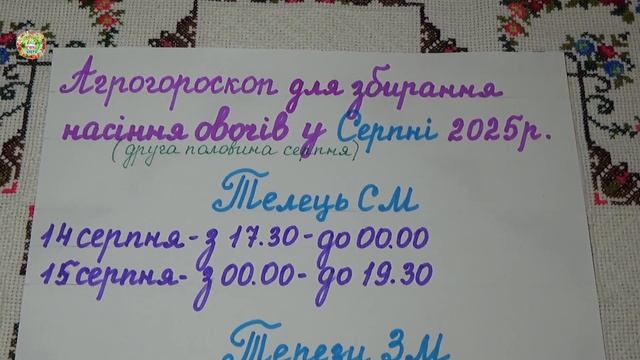 Агрогороскоп для збирання
насіння овочів у Серпні 2025р.
(друга половина серпня)
Телець СМ
14 серпня - з 17.30 - до 00.00
15 серпня - з 00.00 - до 19.30
Терези ЗМ